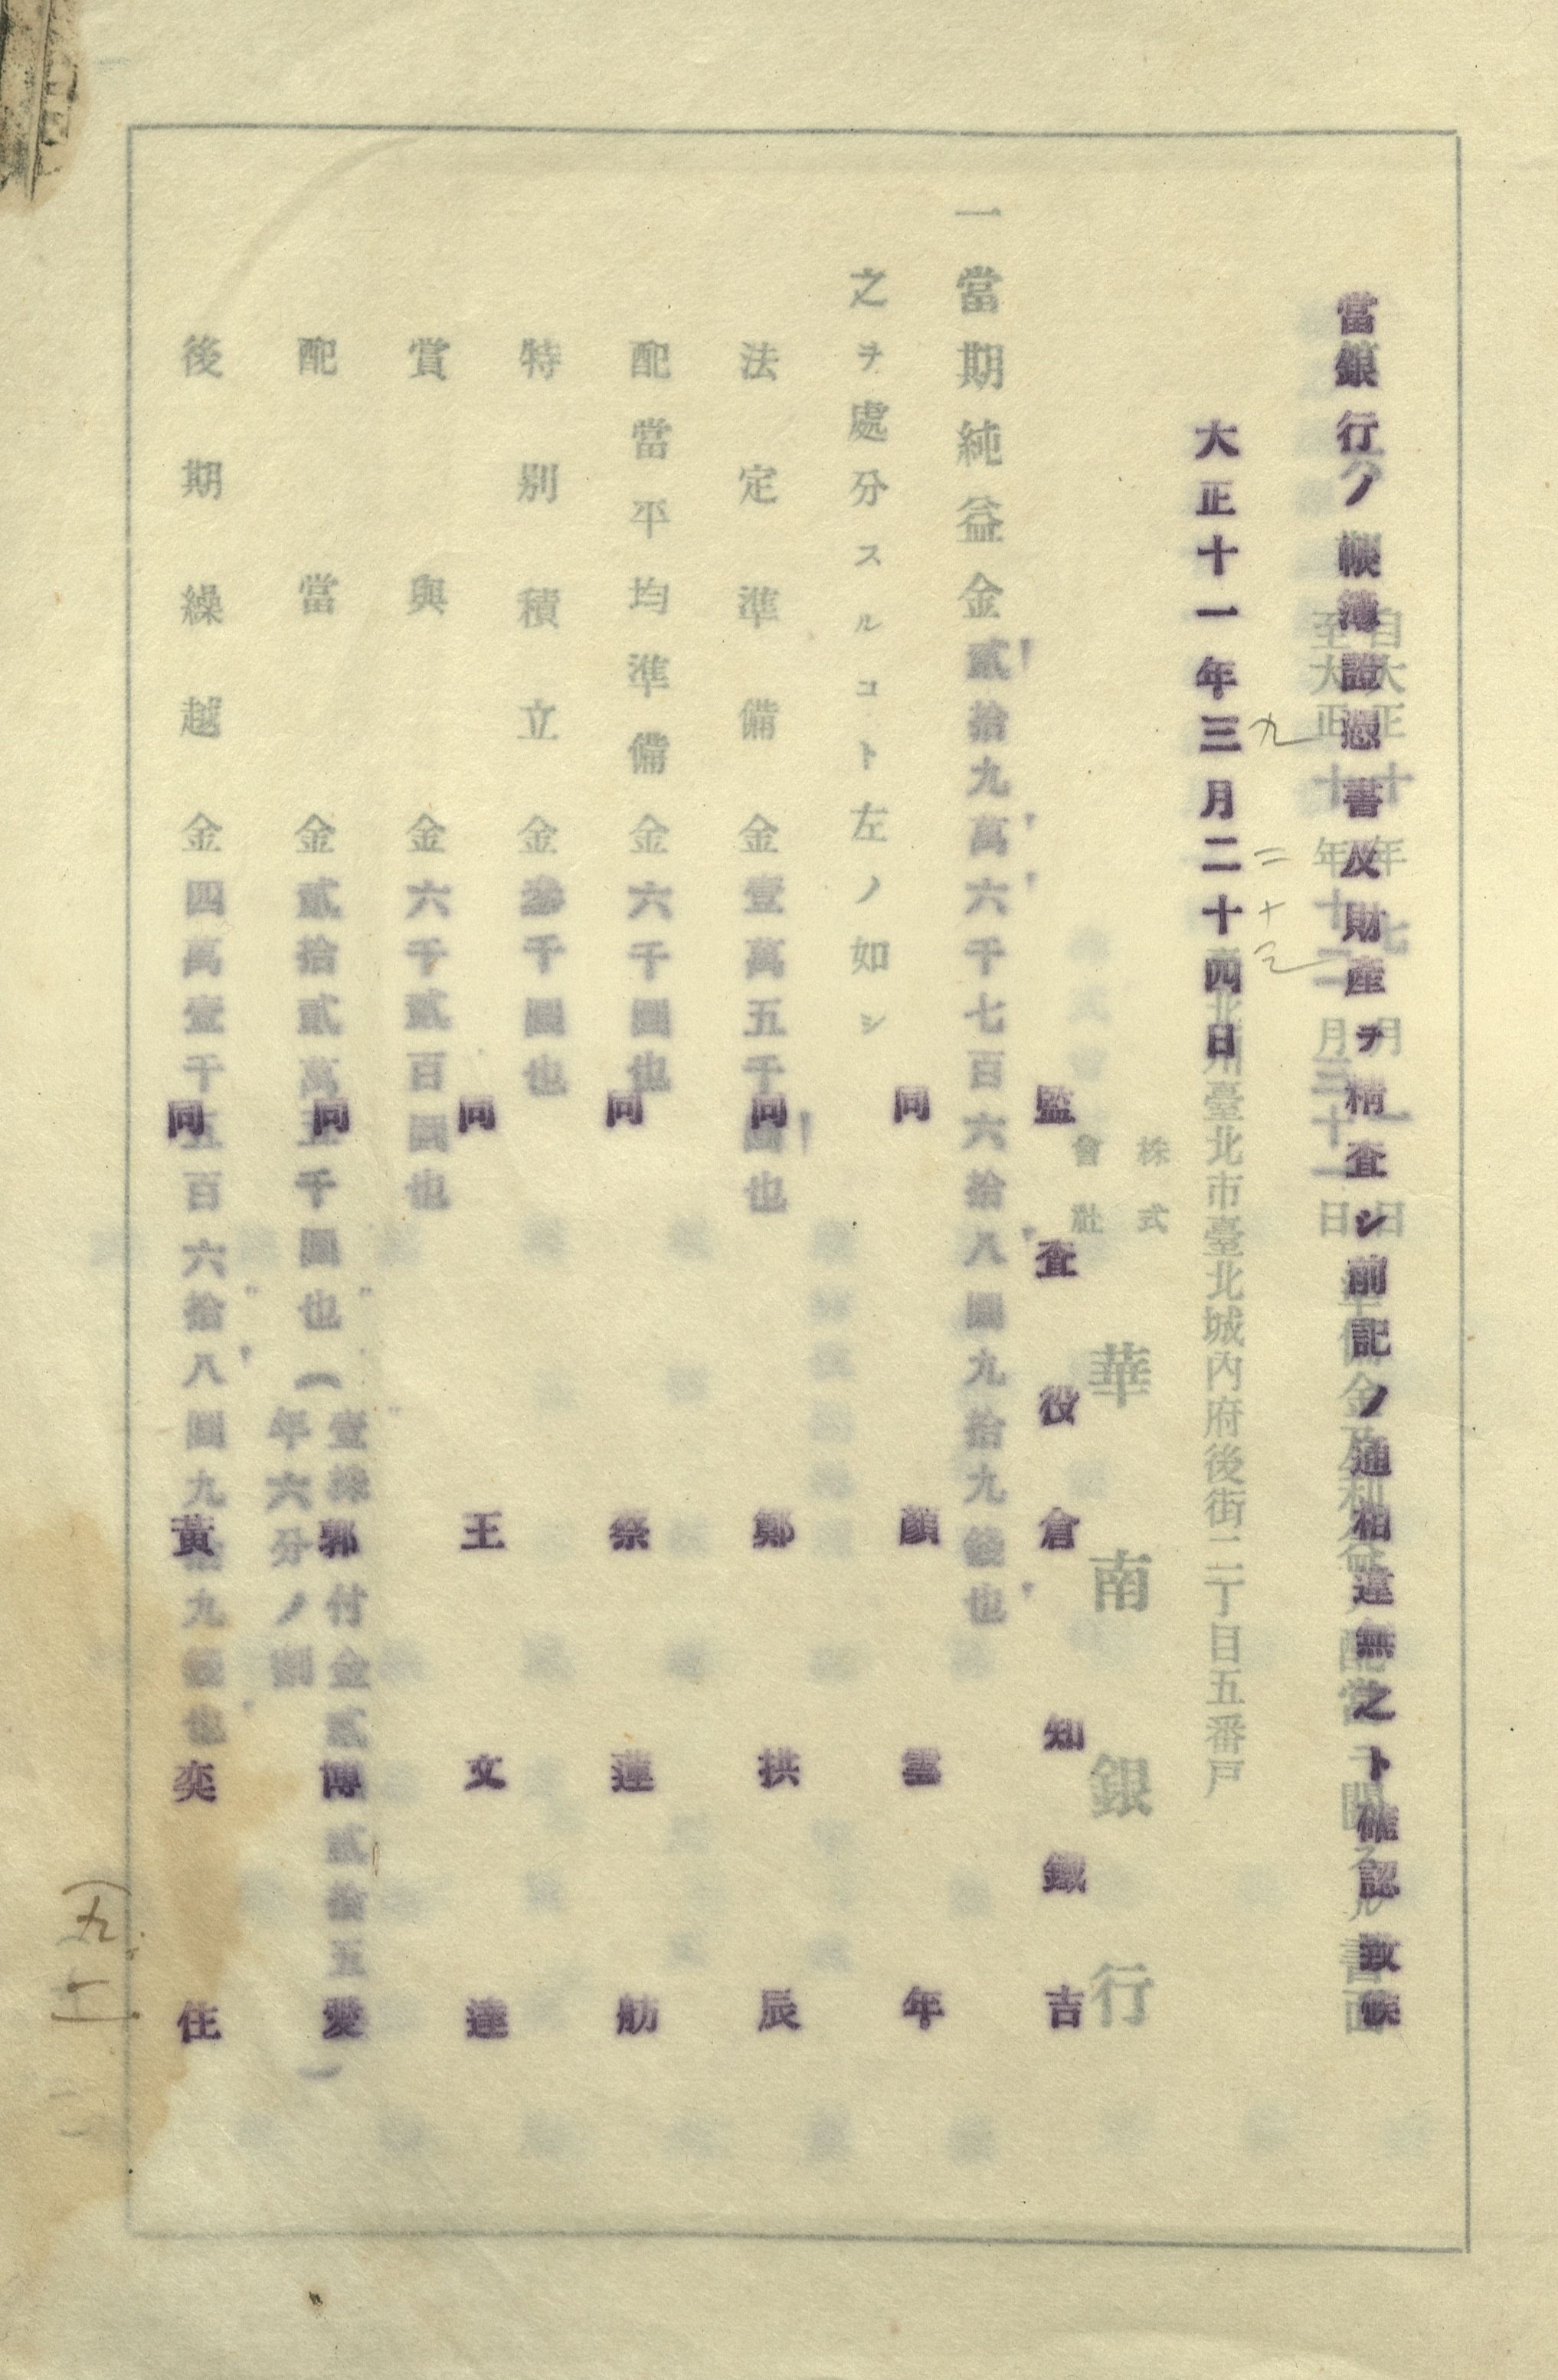 當銀行ノ帳簿證憑書及財産ヲ精査シ前記ノ通相違無之ト確認致候
大正十一年三月二十四日
九
二十三
監査役 倉知鐵吉
同 顏雲年
同 鄭拱辰
同 蔡蓮舫
同 王文達
同 郭博愛
同 黃奕住
自大正十年七月一日
至大正十年十二月三十一日
準備金及利益ノ配當ニ關スル書面
臺北州臺北市臺北城內府後街二丁目五番戶
株式會社 華南銀行
一當期純益金貳拾九萬六千七百六拾八圓九拾九錢也
之ヲ處分スルコト左ノ如シ
法定準備金壹萬五千圓也
配當平均準備金六千圓也
特別積立金參千圓也
賞與金六千貳百圓也
配當金貳拾貳萬五千圓也(壹株ニ付金貳圓貳拾五錢
年六分ノ割)
後期繰越金四萬壹千五百六拾八圓九拾九錢也